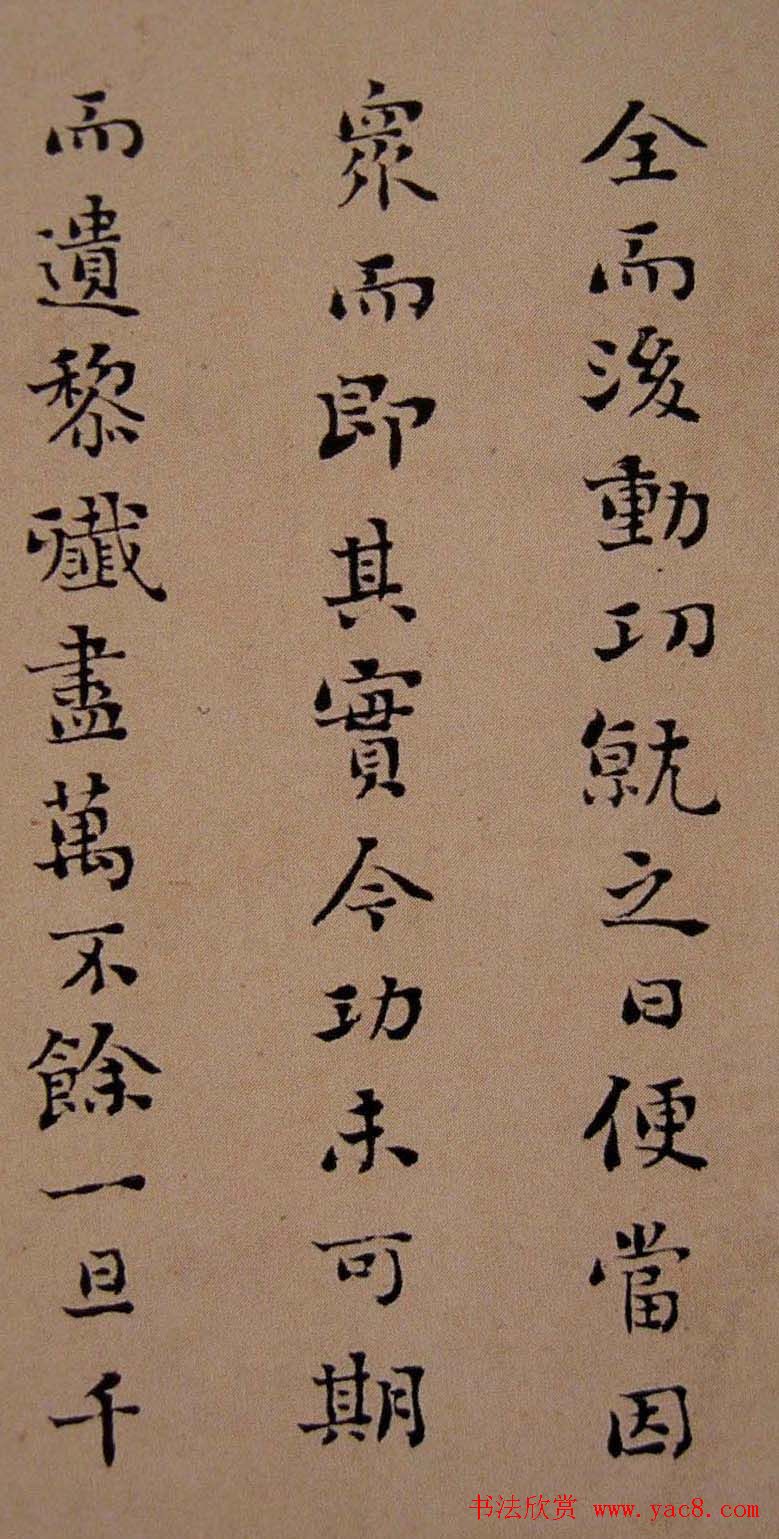 全而後動功就之日便當因
衆而即其實今功未可期
而遺黎殲盡萬不餘一旦千
书法欣赏 www.yac8.com